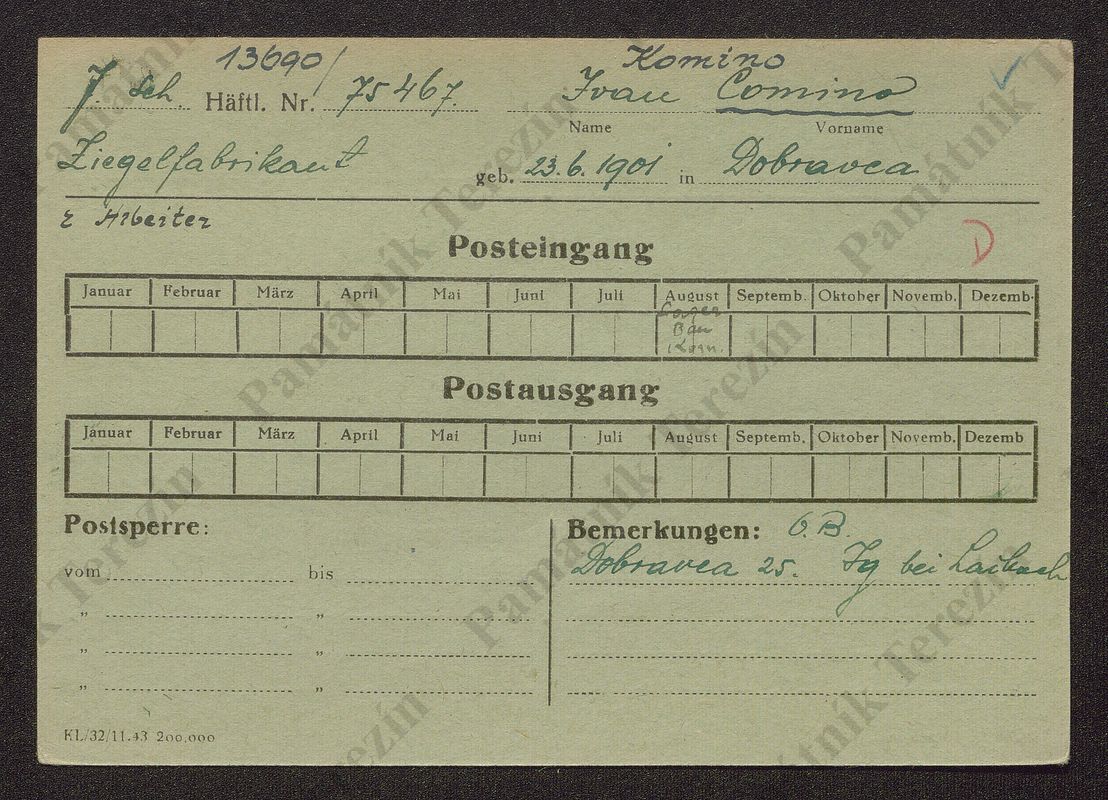 13690/ Komino
J. Sch. Häftl. Nr. 75467. Ivan Comino
Name Vorname
Ziegelfabrikant geb. 23.6.1901 in Dobravca
z Arbeiter
D
Posteingang
Januar Februar März April Mai Juni Juli August Septemb. Oktober Novemb. Dezemb.
Lager
Bau
Kom.
Postausgang
Januar Februar März April Mai Juni Juli August Septemb. Oktober Novemb. Dezemb
Postsperre: Bemerkungen: O.B.
vom bis Dobravca 25. Ig bei Laibach
„ „
„ „
„ „
KL/32/11.43 200,000
Památník Terezín